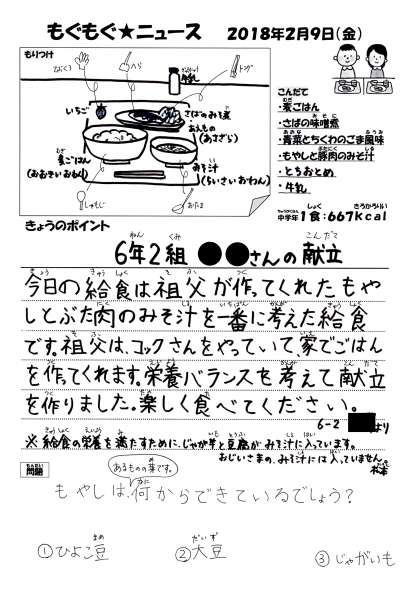 もぐもぐ★ニュース 2018年2月9日(金)
もりつけ
へら
トング
牛乳
いちご
さばのみそ煮
あえもの
(あさざら)
麦ごはん
(おおきいおわん)
みそ汁
(ちいさいおわん)
しゃもじ
おたま
こんだて
・麦ごはん
・さばの味噌煮
・青菜とちくわのごま風味
・もやしと豚肉のみそ汁
・とちおとめ
・牛乳
中学年 1食:667kcal
きょうのポイント
6年2組 ●●さんの献立
今日の給食は祖父が作ってくれたもや
しとぶた肉のみそ汁を一番に考えた給食
です。祖父は、コックさんをやっていて、家でごはん
を作ってくれます。栄養バランスを考えて献立
を作りました。楽しく食べてください。
6-2 より
※給食の栄養を満たすために、じゃが芋と豆腐がみそ汁に入っています。
おじいさまの、みそ汁には入っていません。
問題
あるものの芽です。
もやしは、何からできているでしょう?
①ひよこ豆 ②大豆 ③じゃがいも